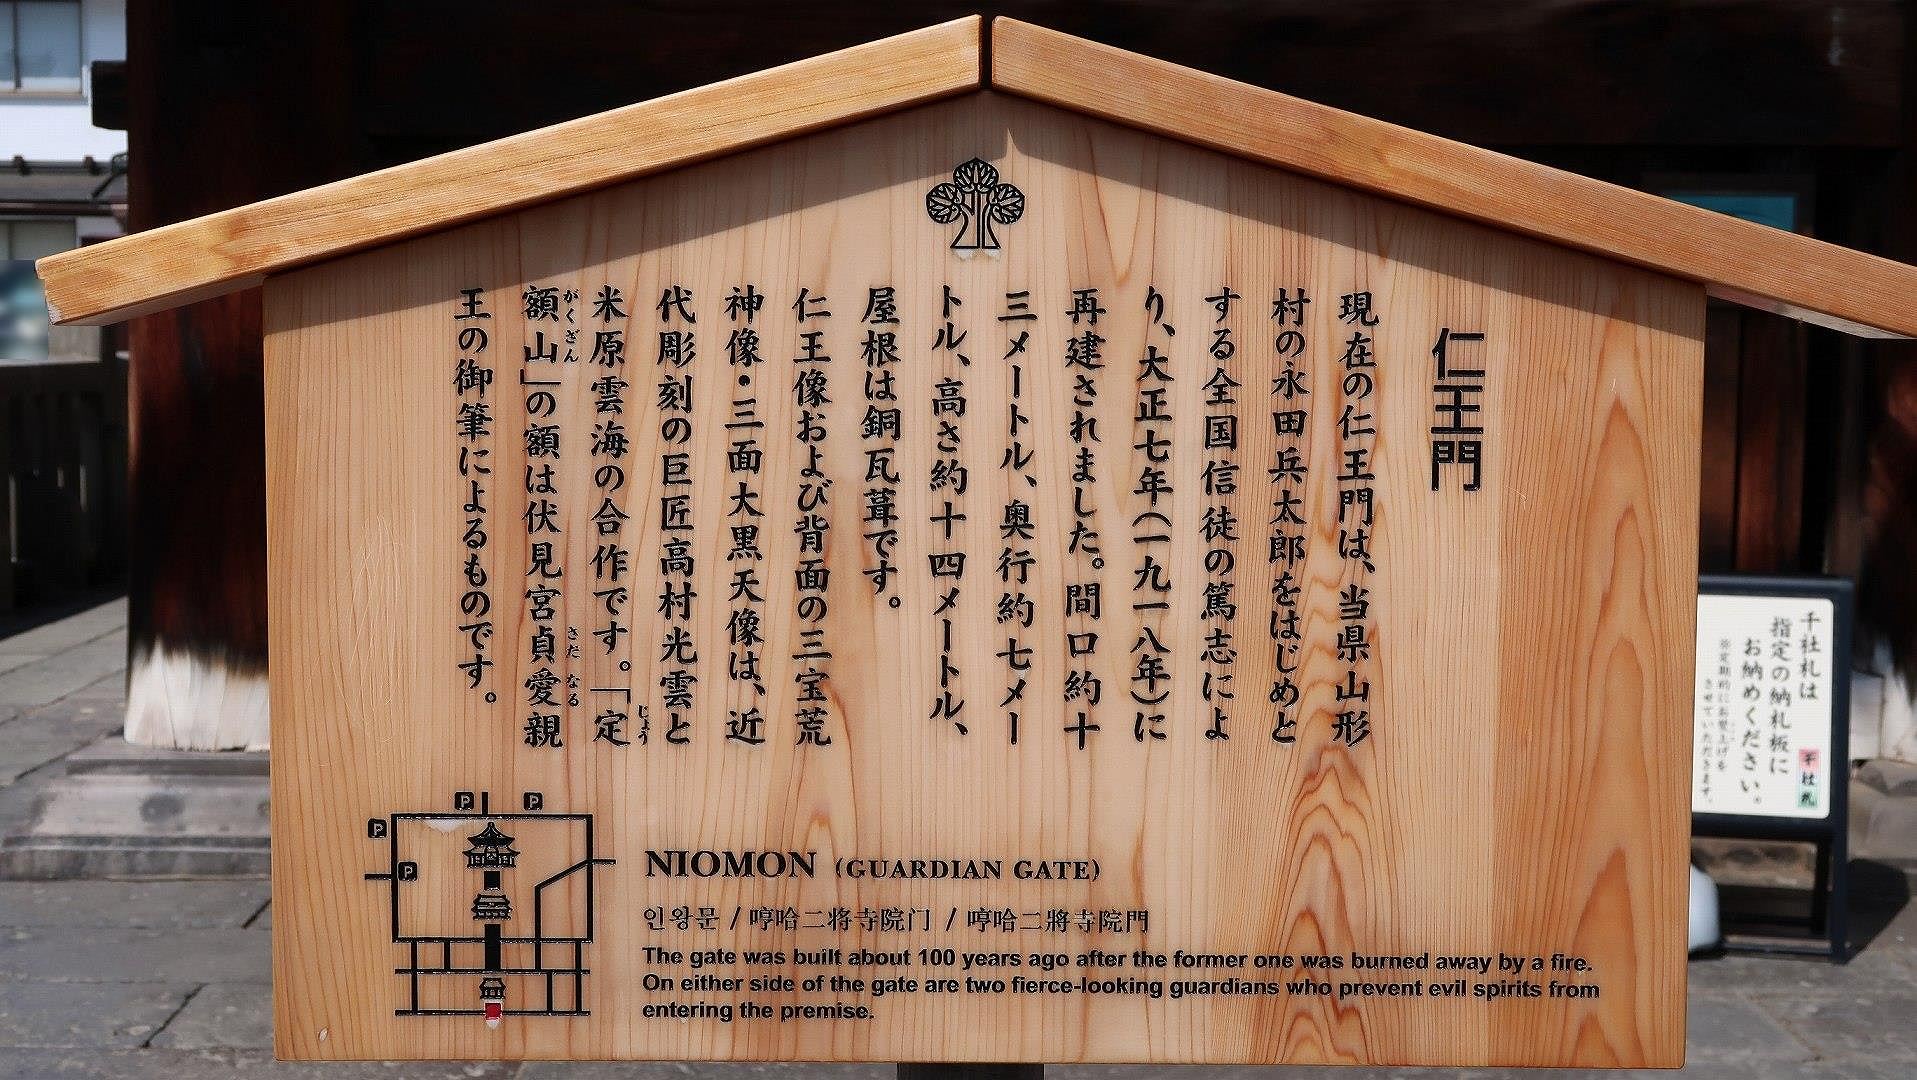 仁王門
現在の仁王門は、当県山形
村の永田兵太郎をはじめと
する全国信徒の篤志によ
り、大正七年(一九一八年)に
再建されました。間口約十
三メートル、奥行約七メー
トル、高さ約十四メートル、
屋根は銅瓦葺です。
仁王像および背面の三宝荒
神像・三面大黒天像は、近
代彫刻の巨匠高村光雲と
米原雲海の合作です。「定
じょう
額山」の額は伏見宮貞愛親
がくざん
さだ なる
王の御筆によるものです。
P
P
P
P
NIOMON (GUARDIAN GATE)
인왕문 / 哼哈二将寺院门 / 哼哈二將寺院門
The gate was built about 100 years ago after the former one was burned away by a fire.
On either side of the gate are two fierce-looking guardians who prevent evil spirits from
entering the premise.
千社札は
指定の納札板に
お納めください。
※定期的にお焚上げを
させていただきます。
千社札